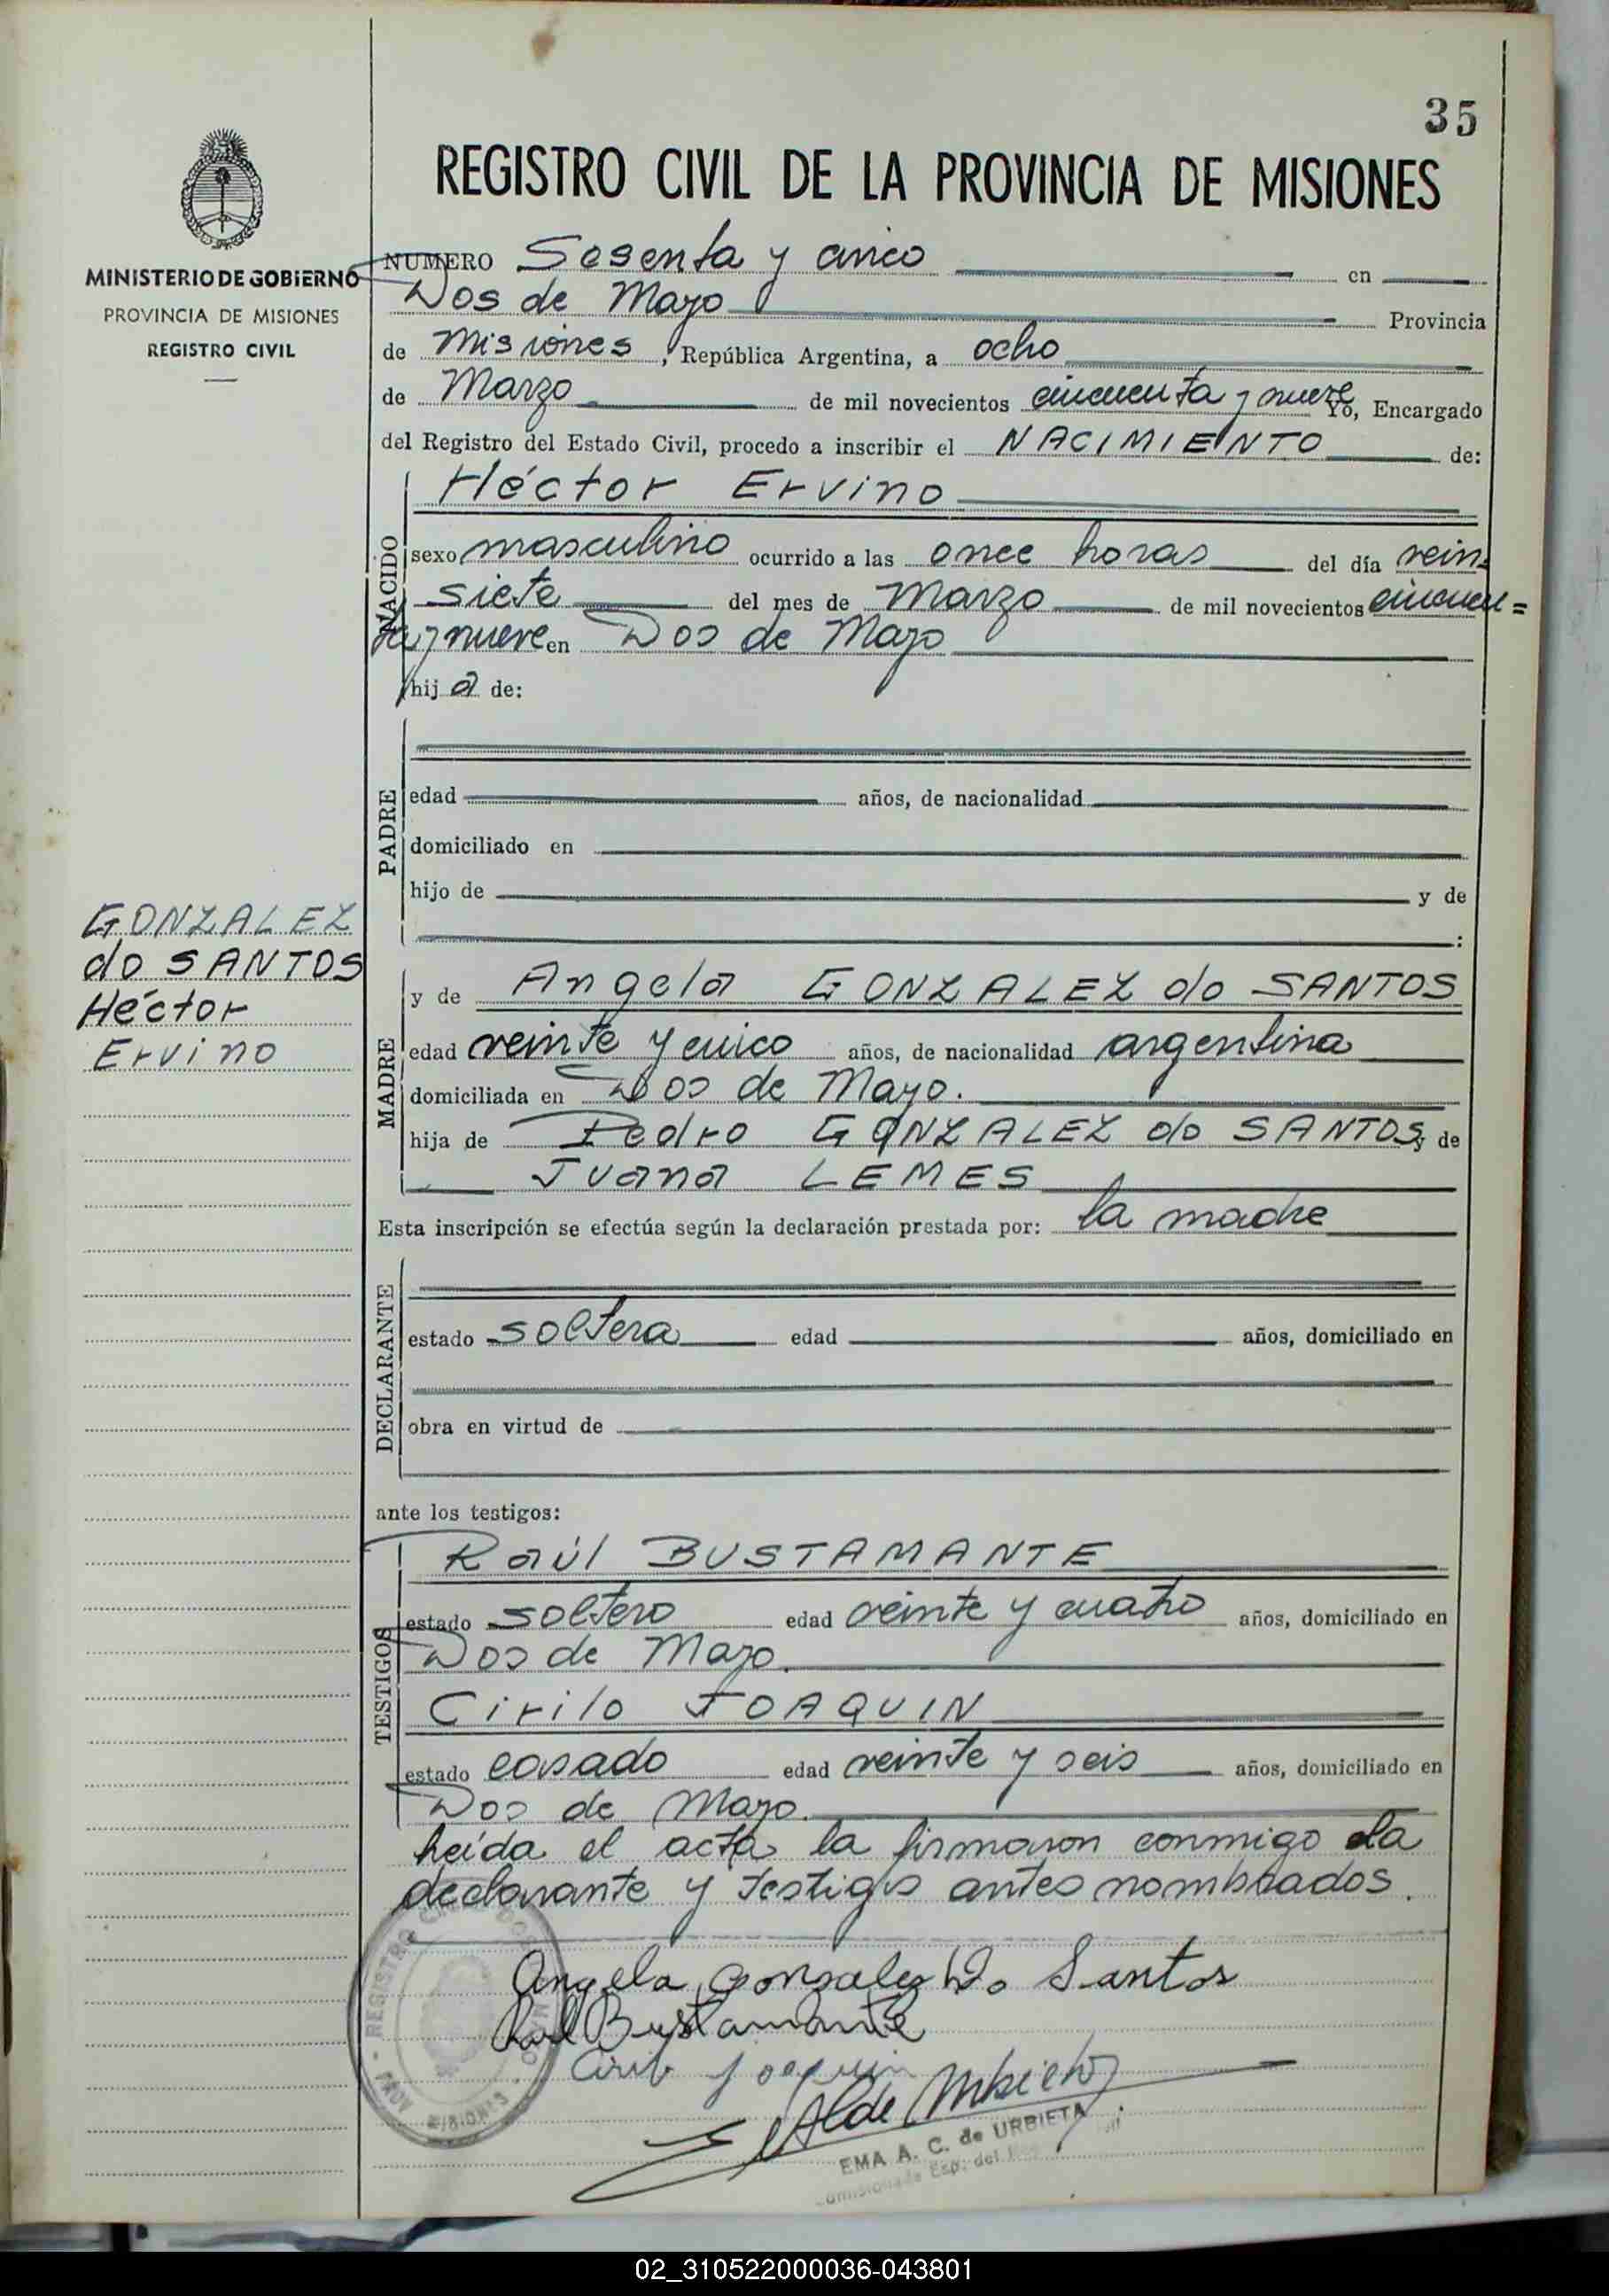 35
REGISTRO CIVIL DE LA PROVINCIA DE MISIONES
MINISTERIO DE GOBIERNO
PROVINCIA DE MISIONES
REGISTRO CIVIL
NUMERO Sesenta y cinco en
Dos de Mayo Provincia
de Misiones, República Argentina, a ocho
de Marzo de mil novecientos cincuenta y nueve Yo, Encargado
del Registro del Estado Civil, procedo a inscribir el NACIMIENTO de:
NACIDO
Héctor Ervino
sexo masculino ocurrido a las once horas del día vein-
siete del mes de Marzo de mil novecientos cincuen=
ta y nueve en Dos de Mayo
hij o de:
PADRE
edad años, de nacionalidad
domiciliado en
hijo de y de
:
GONZALEZ
do SANTOS
Héctor
Ervino
MADRE
y de Angela GONZALEZ do SANTOS
edad veinte y cinco años, de nacionalidad argentina
domiciliada en Dos de Mayo.
hija de Pedro GONZALEZ do SANTOS y de
Juana LEMES
Esta inscripción se efectúa según la declaración prestada por: la madre
DECLARANTE
estado soltera edad años, domiciliado en
obra en virtud de
ante los testigos:
TESTIGOS
Raúl BUSTAMANTE
estado soltero edad veinte y cuatro años, domiciliado en
Dos de Mayo.
Cirilo JOAQUIN
estado casado edad veinte y seis años, domiciliado en
Dos de Mayo.
Leída el acta la firmaron conmigo la
declarante y testigos antes nombrados.
Angela Gonzalez Do Santos
Raul Bustamante
Cirilo Joaquin
EMA A. C. de URBIETA
Esp. del
REGISTRO CIVIL DOS
PROV. MISIONES
02_310522000036-043801